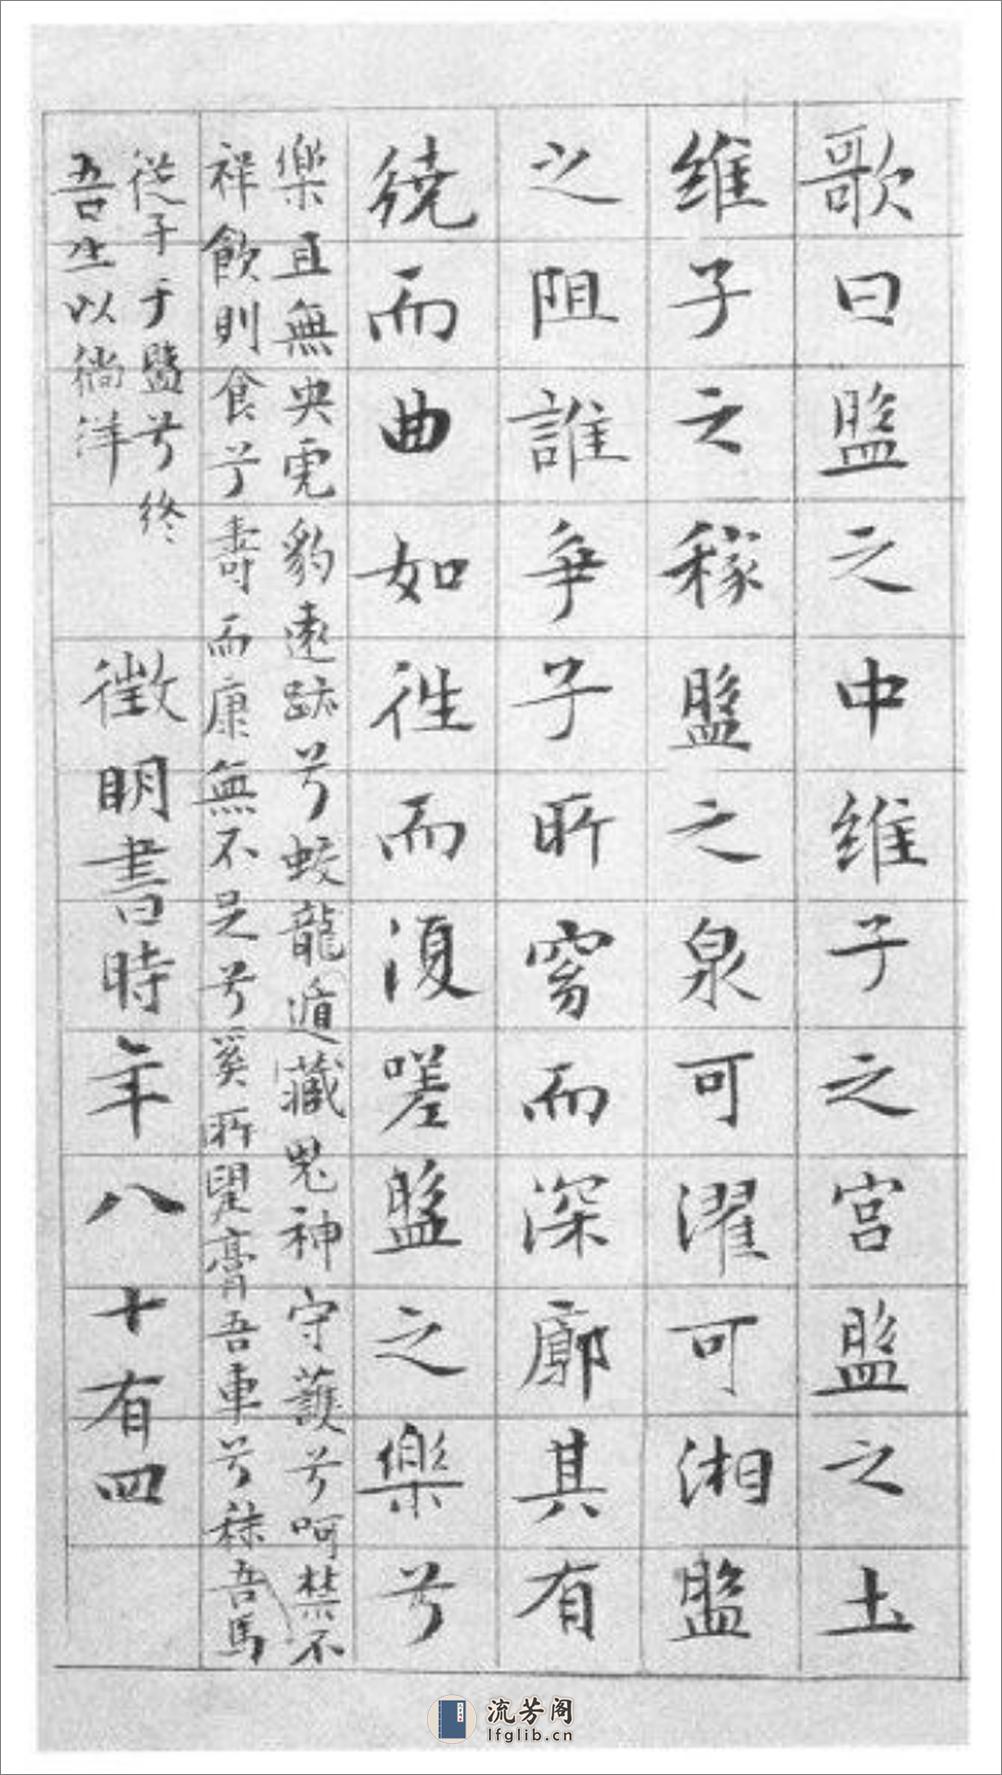 歌曰盤之中維子之宮盤之土
維子之稼盤之泉可濯可湘盤
之阻誰爭子所窈而深廓其有
繞而曲如往而復嗟盤之樂兮
樂且無央虎豹遠跡兮蛟龍遁藏鬼神守護兮呵禁不
祥飲則食兮壽而康無不足兮奚所望膏吾車兮秣吾馬
從子于盤兮終
吾生以徜徉
徵明書時年八十有四
流芳阁
lfglib.cn